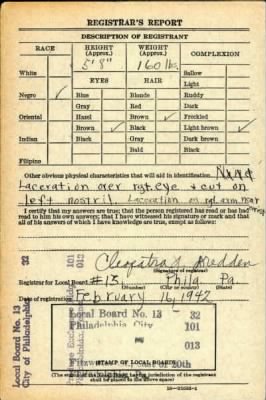 REGISTRAR'S REPORT
DESCRIPTION OF REGISTRANT
RACE HEIGHT (Approx.) WEIGHT (Approx.) COMPLEXION
5' 8" 160 lb.
White Sallow
EYES HAIR Light
Negro ✓ Blue Blonde Ruddy
Gray Red Dark
Oriental Hazel Brown Freckled
Brown ✓ Black ✓ Light brown ✓
Indian Black Gray Dark brown
Bald Black
Filipino
Other obvious physical characteristics that will aid in identification
Laceration over rgt. eye & cut on
left nostril Laceration on rgt arm near
I certify that my answers are true; that the person registered has read or has had
read to him his own answers; that I have witnessed his signature or mark and that
all of his answers of which I have knowledge are true, except as follows:
Cleopatra Madden
(Signature of registrar)
Registrar for Local Board #13 Phila Pa.
(Number) (City or county) (State)
Date of registration February 16, 1942
Local Board No. 13 32
Philadelphia City 101
013
20th
(STAMP OF LOCAL BOARD)
(The stamp of the Local Board having jurisdiction of the registrant
shall be placed in the above space)
Local Board No. 13 32
City of Philadelphia 101
013